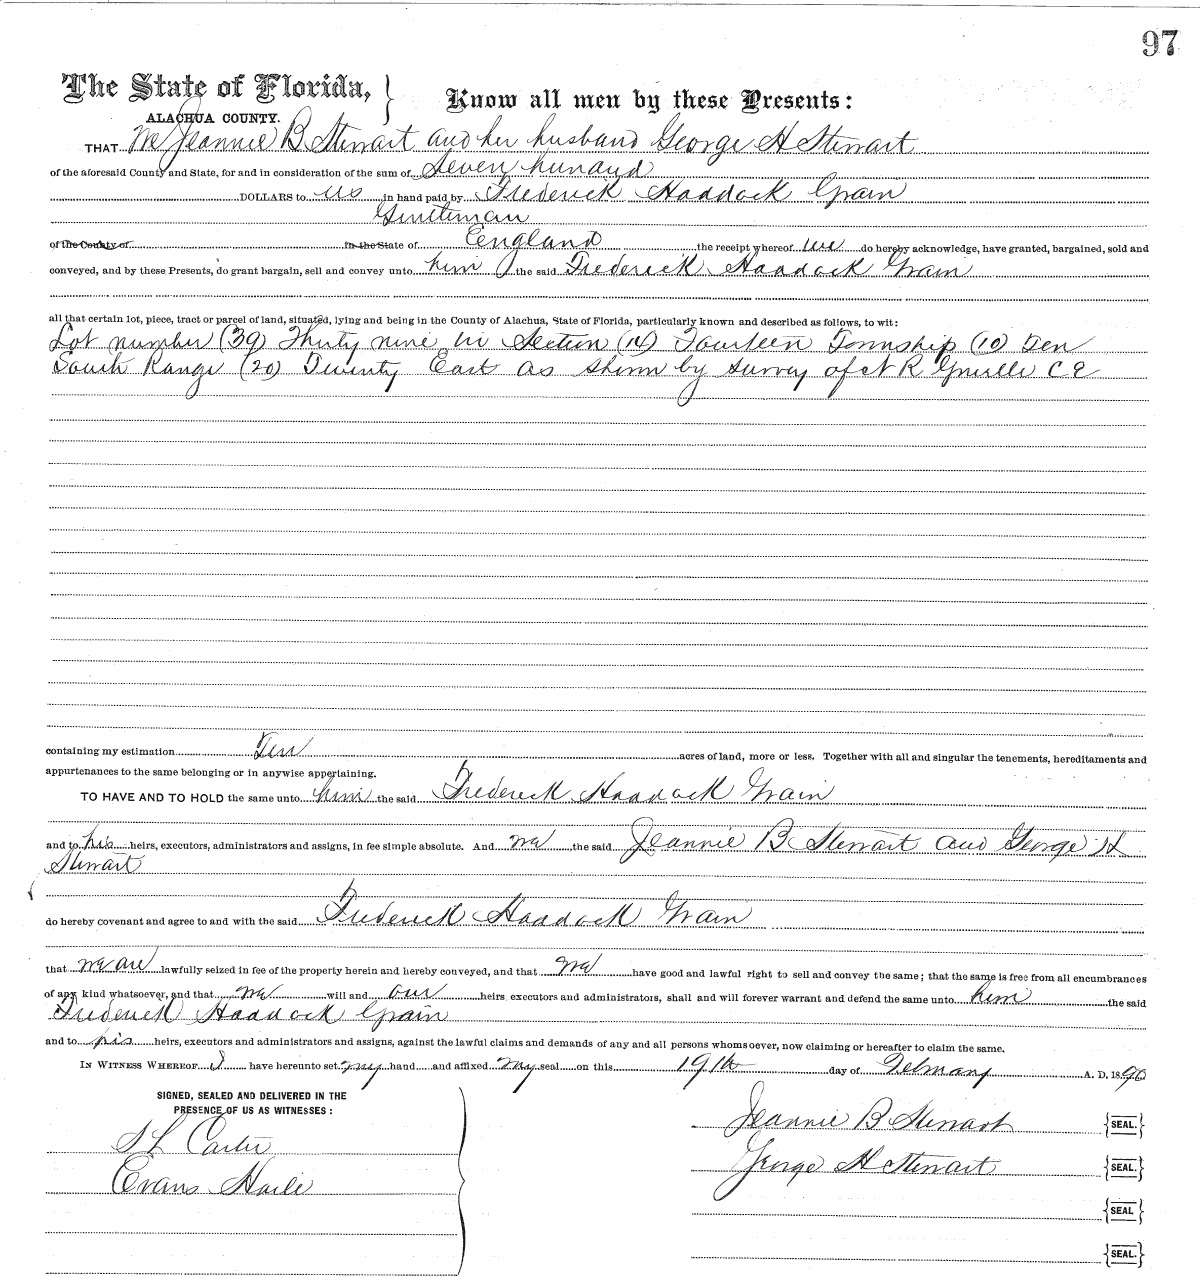 97
The State of Florida, }
ALACHUA COUNTY.
Know all men by these Presents:
THAT We Jeannie B Stewart and her husband George H Stewart
of the aforesaid County and State, for and in consideration of the sum of Seven hundred
DOLLARS to us in hand paid by Frederick Haddock Grain
Gentleman
of the County of in the State of England the receipt whereof we do hereby acknowledge, have granted, bargained, sold and
conveyed, and by these Presents, do grant bargain, sell and convey unto him the said Frederick Haddock Grain
all that certain lot, piece, tract or parcel of land, situated, lying and being in the County of Alachua, State of Florida, particularly known and described as follows, to wit:
Lot number (39) Thirty nine in Section (14) Fourteen Township (10) Ten
South Range (20) Twenty East as shown by survey of N R C E
containing my estimation Ten acres of land, more or less. Together with all and singular the tenements, hereditaments and
appurtenances to the same belonging or in anywise appertaining.
TO HAVE AND TO HOLD the same unto him the said Frederick Haddock Grain
and to his heirs, executors, administrators and assigns, in fee simple absolute. And we the said Jeannie B Stewart and George H
Stewart
do hereby covenant and agree to and with the said Frederick Haddock Grain
that we are lawfully seized in fee of the property herein and hereby conveyed, and that we have good and lawful right to sell and convey the same; that the same is free from all encumbrances
of any kind whatsoever, and that we will and our heirs, executors and administrators, shall and will forever warrant and defend the same unto him the said
Frederick Haddock Grain
and to his heirs, executors and administrators and assigns, against the lawful claims and demands of any and all persons whomsoever, now claiming or hereafter to claim the same.
IN WITNESS WHEREOF I have hereunto set my hand and affixed my seal on this 19th day of February A. D. 1890
SIGNED, SEALED AND DELIVERED IN THE
PRESENCE OF US AS WITNESSES:
S L Carter
Evans Haile
Jeannie B Stewart {SEAL.}
George H Stewart {SEAL.}
{SEAL}
{SEAL.}